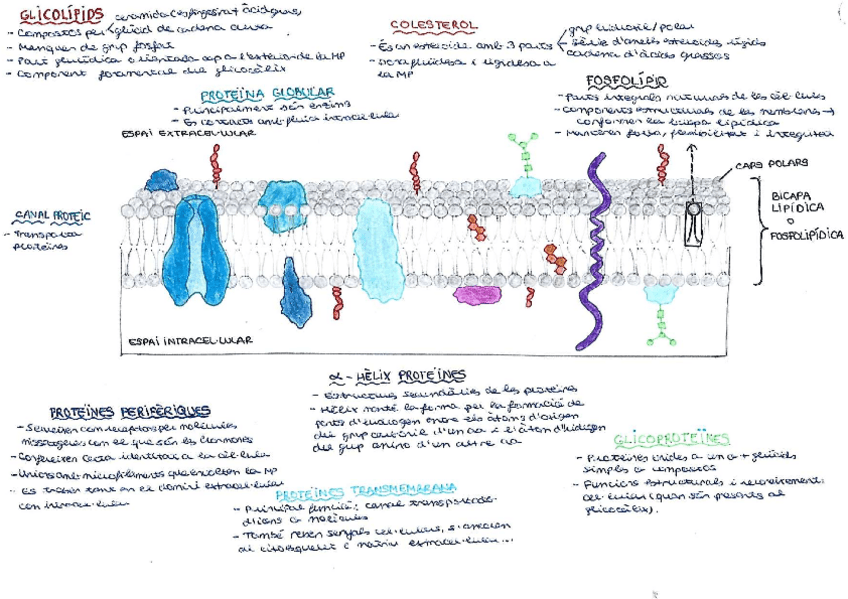 GLICOLÍPIDS
ceramida (esfingosina + àcid gras)
- Compostos per
glúcid de cadena curta
- Manquen de grup fosfat
- Part glucídica orientada cap a l'exterior de la MP
- Component fonamental del glicocàlix
COLESTEROL
- És un esteroide amb 3 parts
grup hidroxil / polar
sèrie d'anells esteroides rígids
cadena d'àcids grassos
- Dona fluïdesa i rigidesa a
la MP
PROTEÏNA GLOBULAR
- Principalment són enzims
- Es contacta amb fluid intracel·lular
FOSFOLÍPID
- Parts integrals naturals de les cèl·lules
- Components estructurals de les membranes →
conformen la bicapa lipídica
- Mantenen forma, flexibilitat i integritat
ESPAI EXTRACEL·LULAR
CAPS POLARS
BICAPA
LIPÍDICA
O
FOSFOLIPÍDICA
CANAL PROTEIC
- Transporta
proteïnes
ESPAI INTRACEL·LULAR
α - HÈLIX PROTEÏNES
- Estructura secundària de les proteïnes
- Hèlix manté la forma per la formació de
ponts d'hidrogen entre els àtoms d'oxigen
del grup carbonil d'un aa i l'àtom d'hidrogen
del grup amino d'un altre aa
PROTEÏNES PERIFÈRIQUES
- Serveixen com receptors per molècules
missatgeres com el que són les hormones
- Confereixen certa identitat a la cèl·lula
- Unions amb microfilaments que enreden la MP
- Es troben tant en el domini extracel·lular
com intracel·lular
PROTEÏNES TRANSMEMBRANA
- Principal funció: canal transportador
d'ions o molècules
- També reben senyals cel·lulars, s'ancoren
al citoesquelet i matriu extracel·lular...
GLICOPROTEÏNES
- Proteïnes unides a un o + glúcids
simples o compostos
- Funcions estructurals i reconeixement
cel·lular (quan són presents al
glicocàlix).